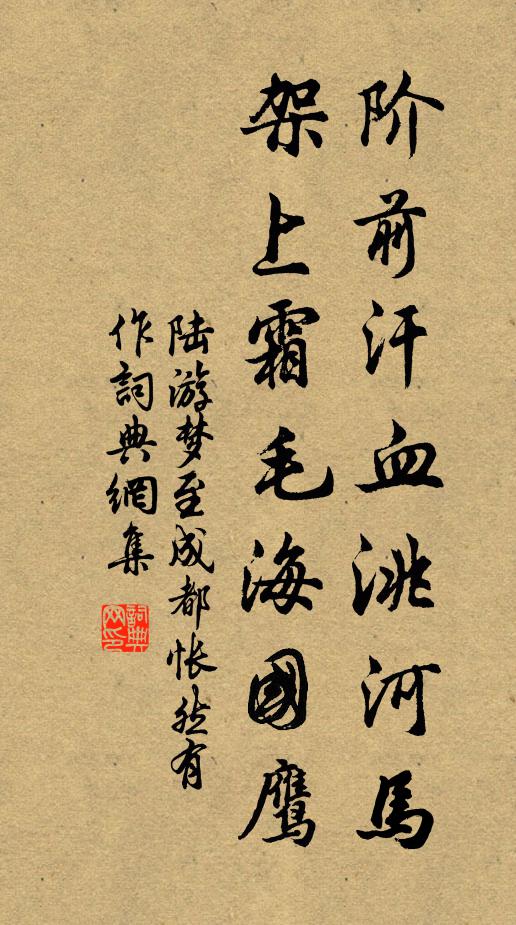 阶前汗血洮河馬
架上霜毛海國鹰
陆游梦至成都怅然有
作詞典網集
詞典
网印